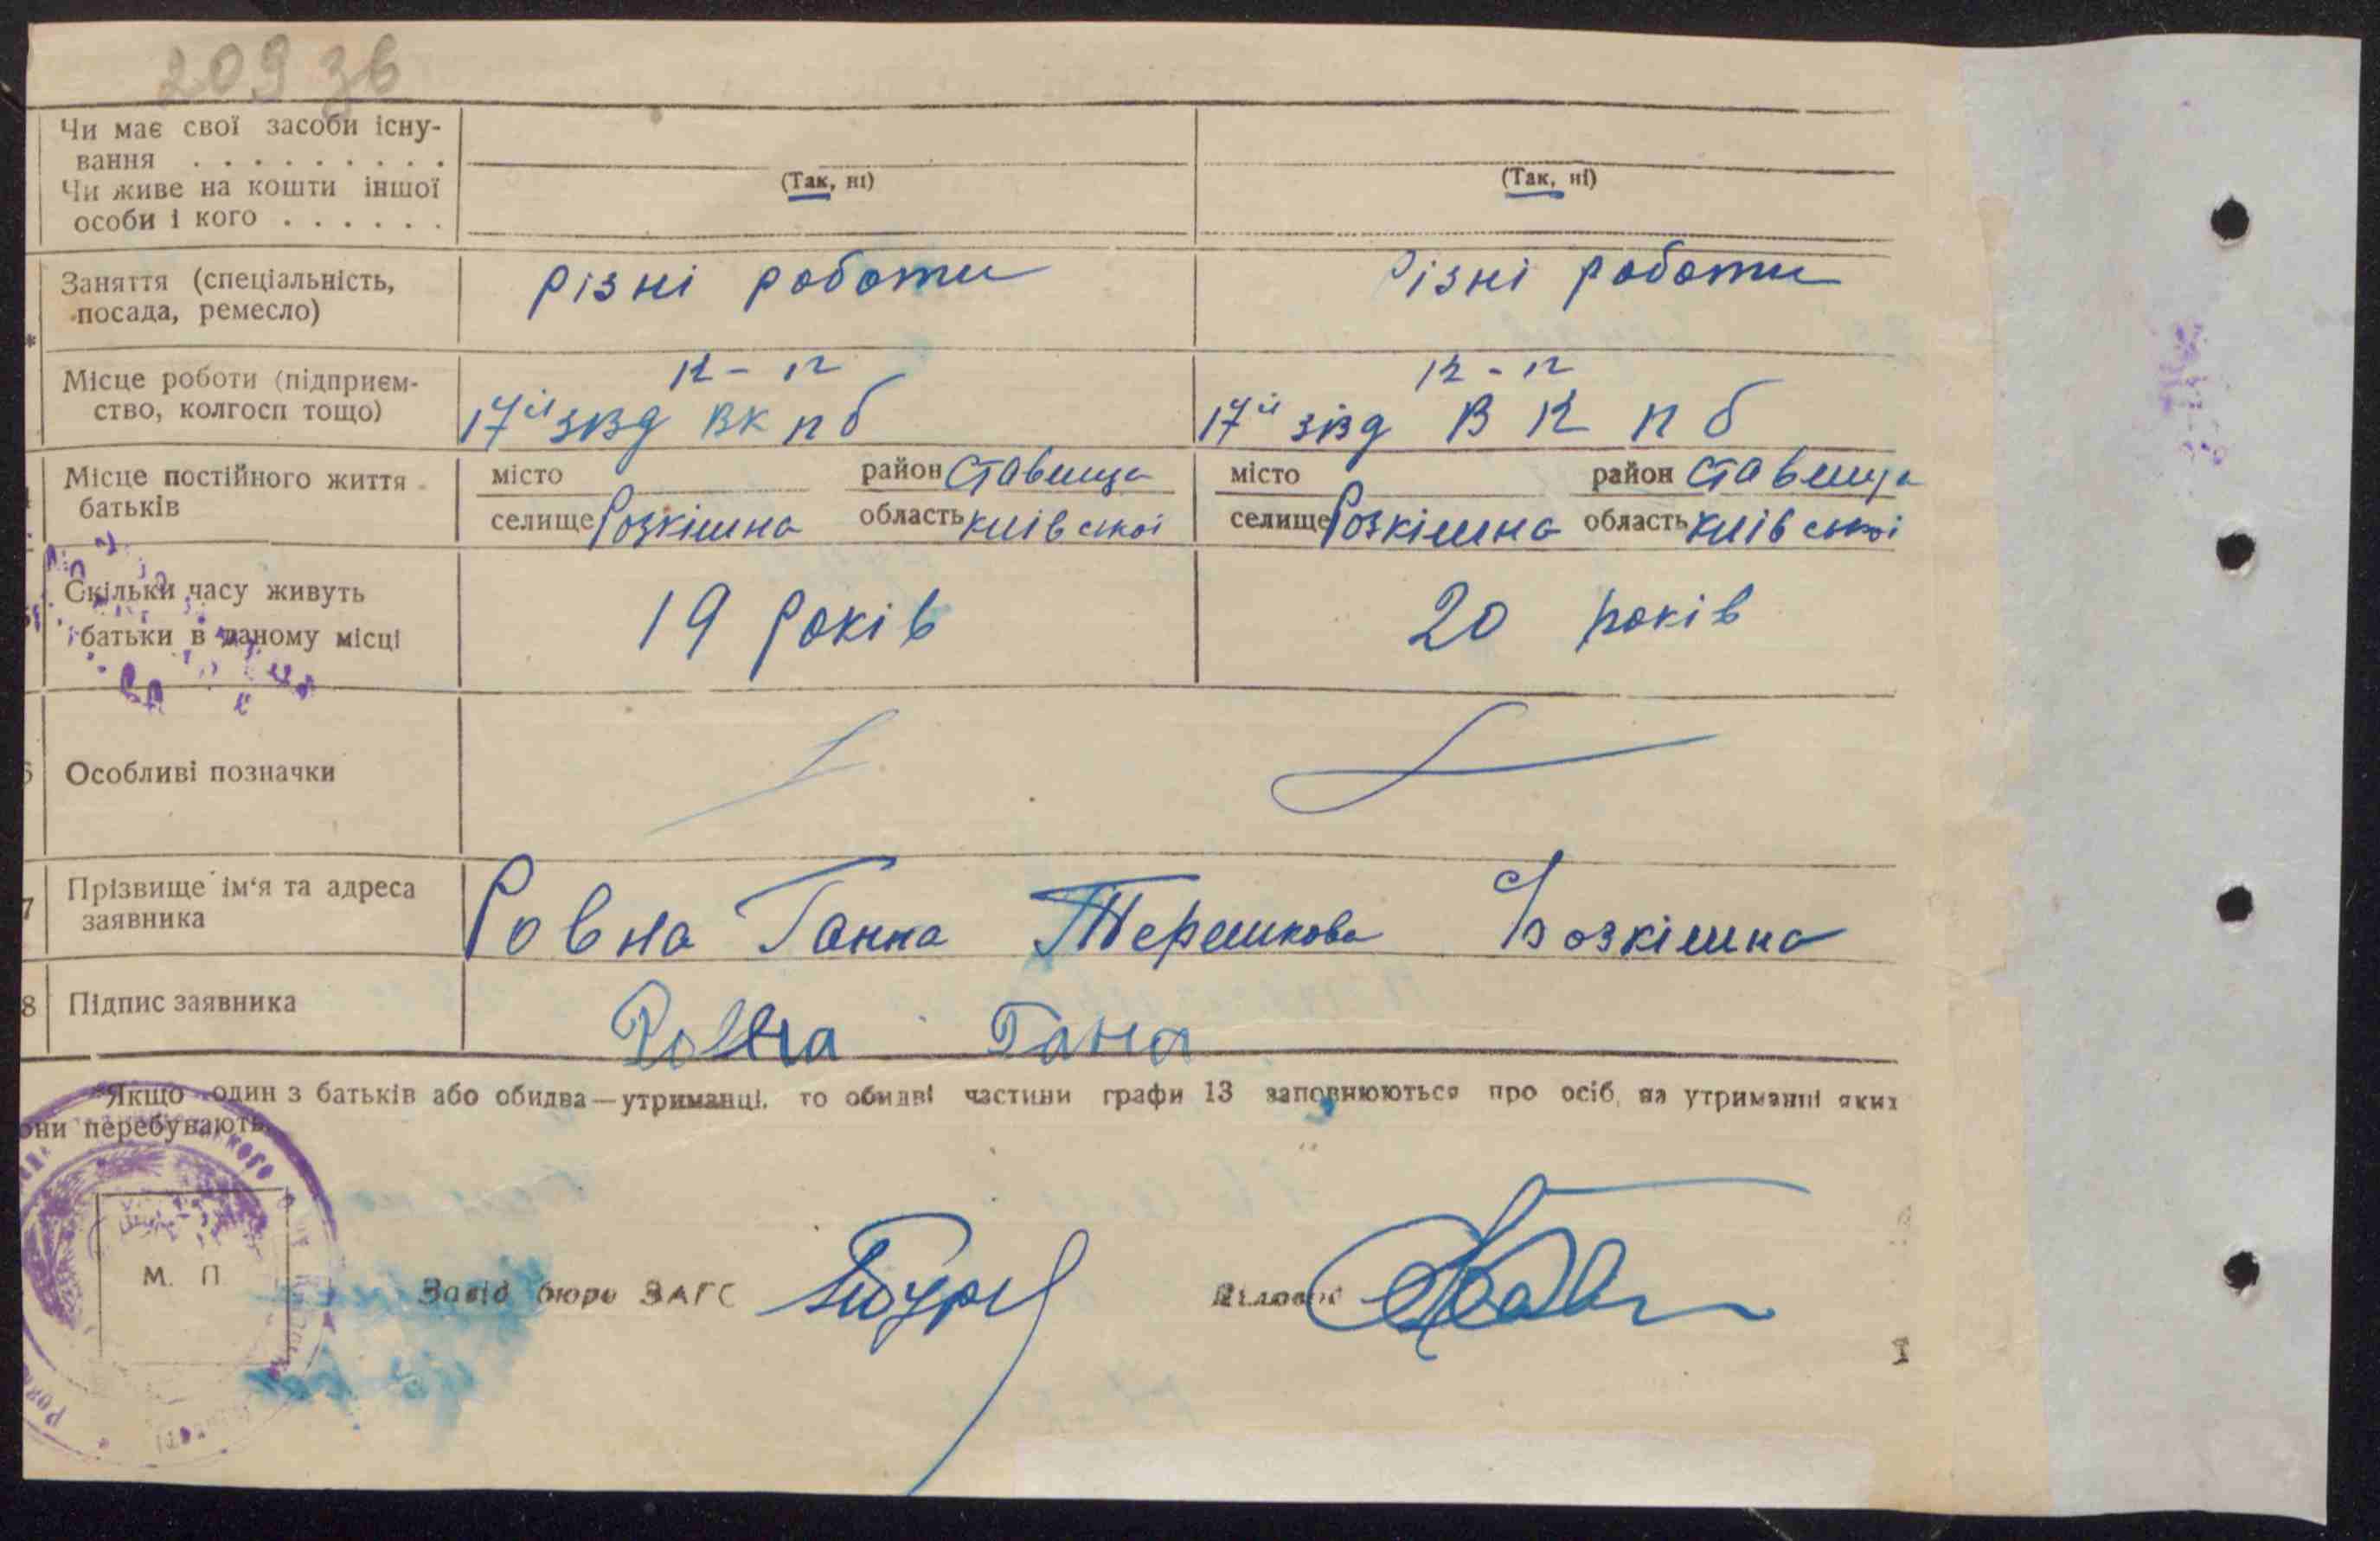 209 зв
Чи має свої засоби існу-
вання . . . . . . . . .
Чи живе на кошти іншої
особи і кого . . . . . .
(Так, ні)
(Так, ні)
Заняття (спеціальність,
посада, ремесло)
різні роботи
різні роботи
Місце роботи (підприєм-
ство, колгосп тощо)
к-п
17й зізд ВК п б
к-п
17й зізд В К п б
Місце постійного життя
батьків
місто район Ставища
селище Розкішна область київської
місто район Ставища
селище Розкішна область київської
Скільки часу живуть
батьки в даному місці
19 років
20 років
6 Особливі позначки
7 Прізвище ім'я та адреса
заявника
Ровна Ганна Терешкова Розкішна
8 Підпис заявника
Ровна Гана
*Якщо один з батьків або обидва—утриманці, то обидві частини графи 13 заповнюються про осіб, на утриманні яких
они перебувають.
М. П
Завід бюро ЗАГС
Діловод